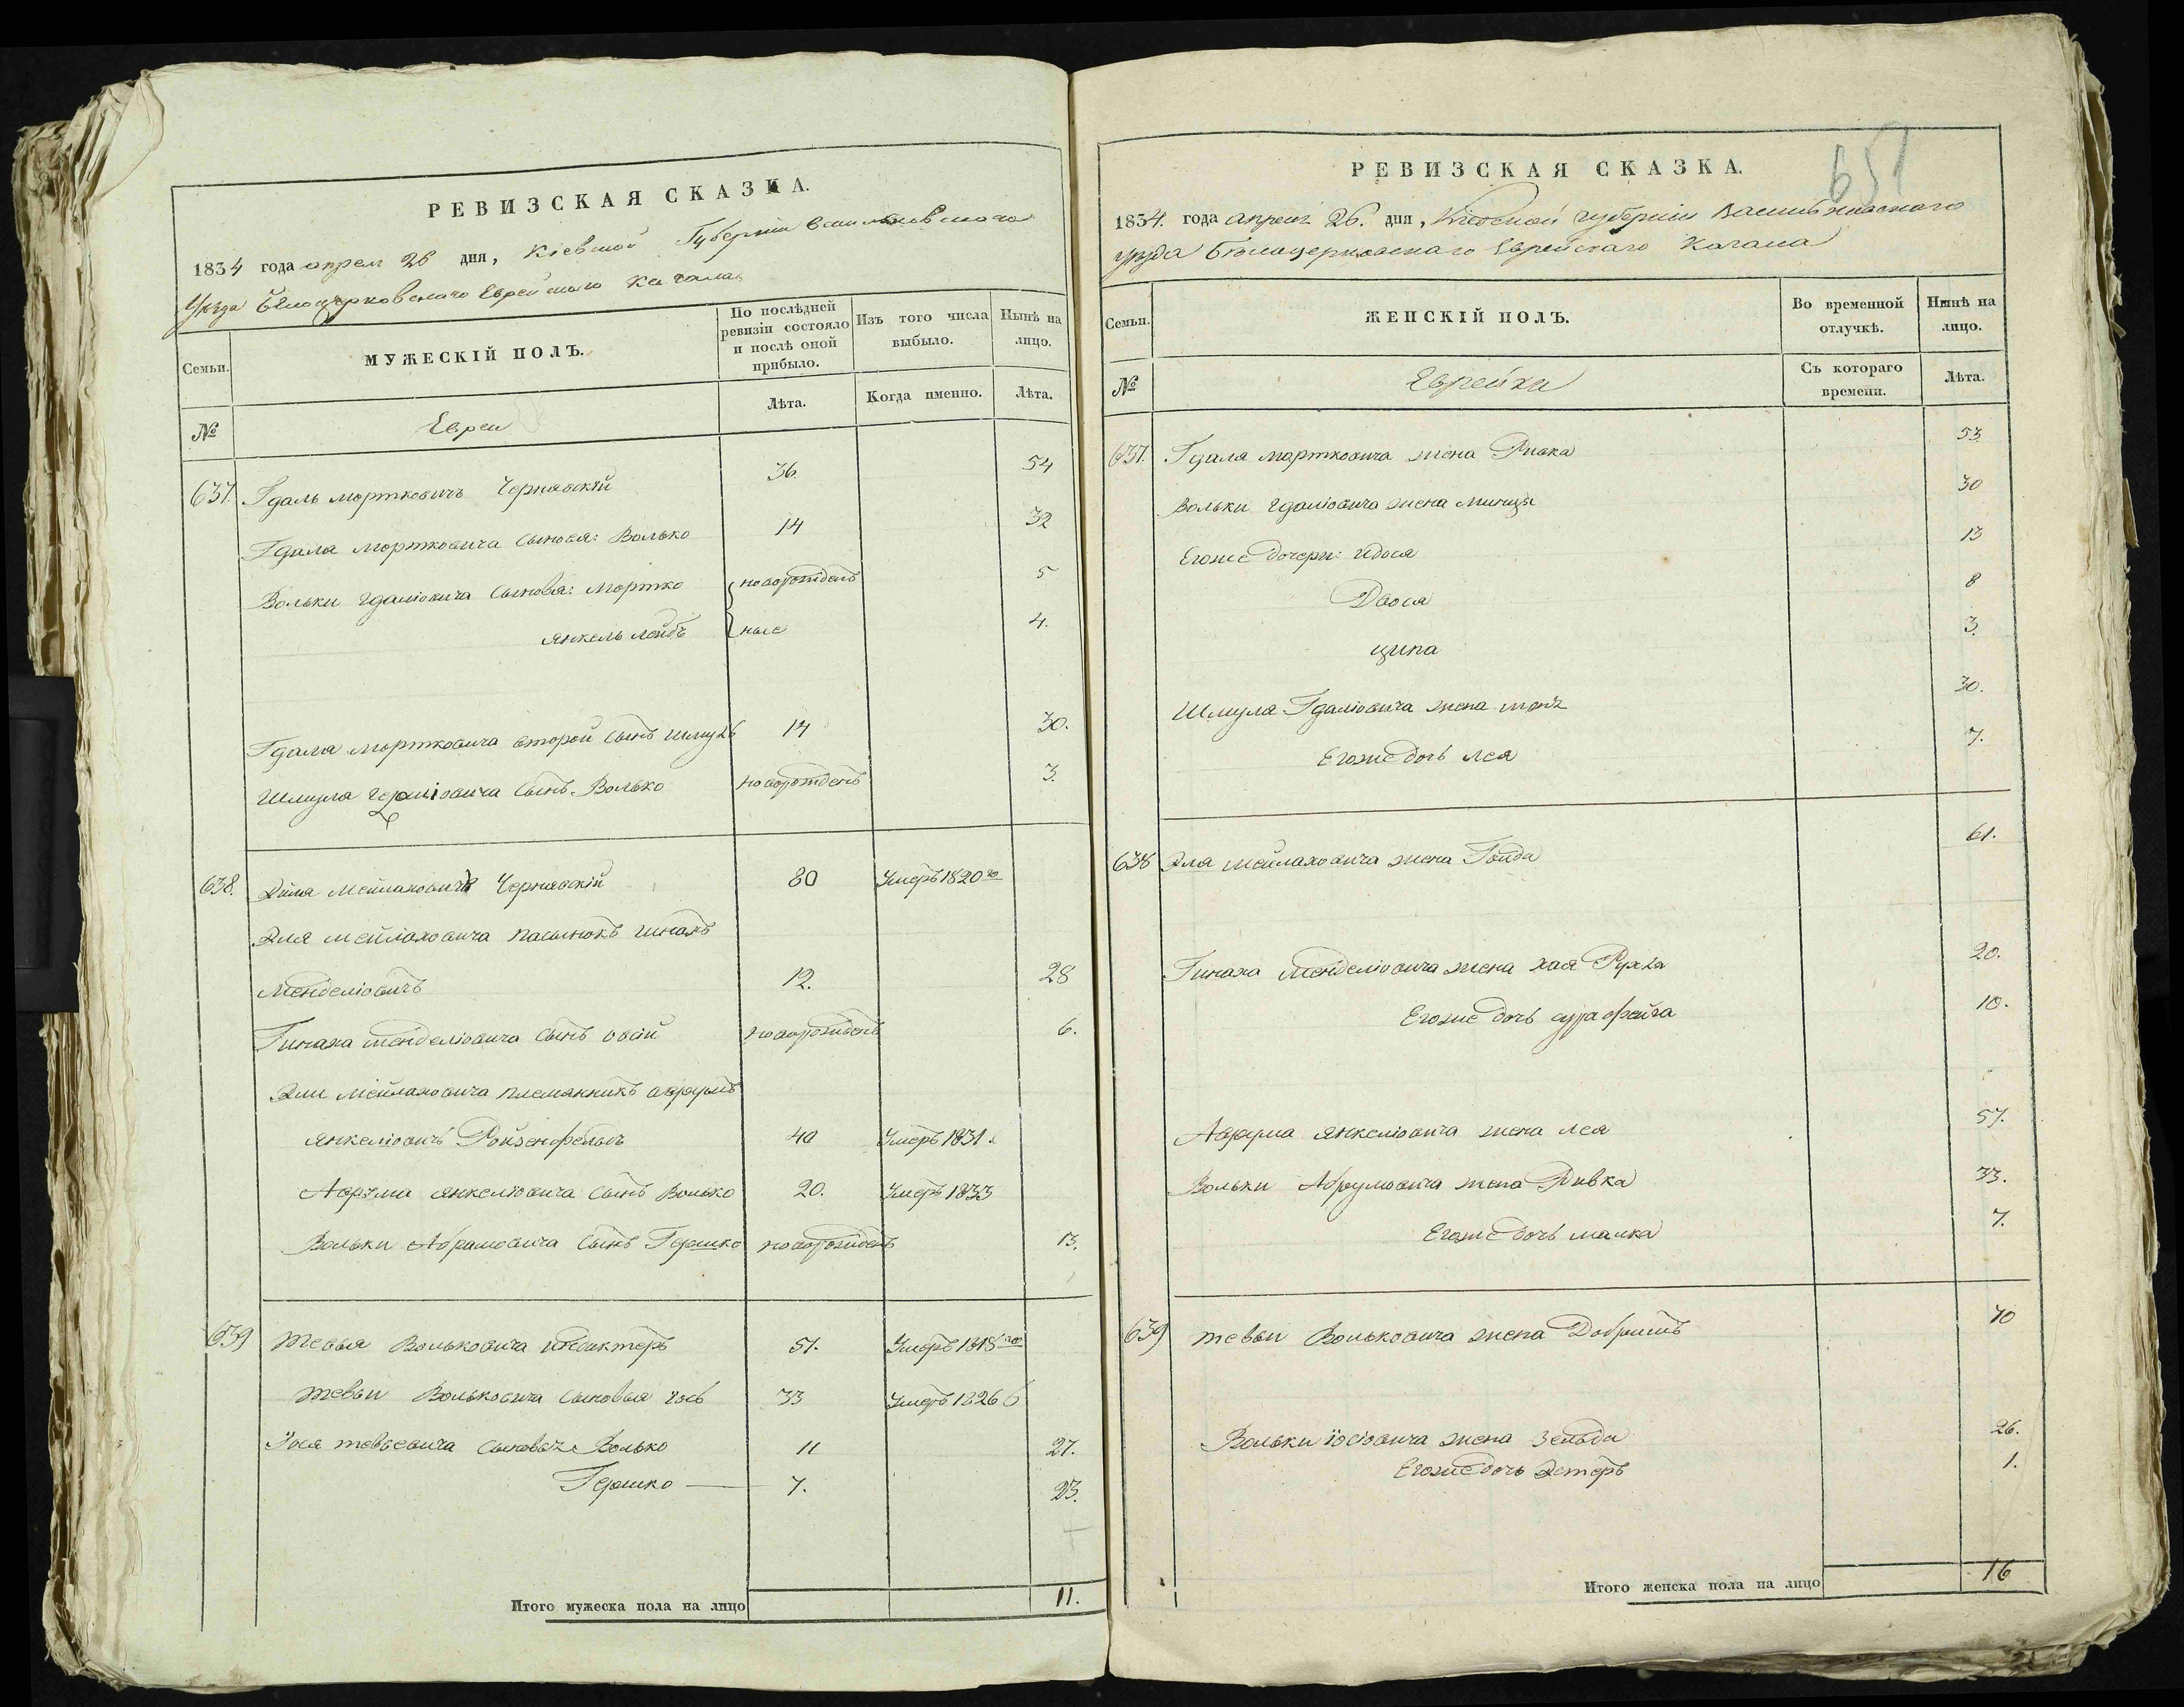 РЕВИЗСКАЯ СКАЗКА.
1834 года апреля 26 дня, Кіевской Губерніи Васильковскаго
Уѣзда Бѣлоцерковскаго Еврейскаго Кагала
Семьи.
МУЖЕСКІЙ ПОЛЪ.
По послѣдней ревизіи состояло и послѣ оной прибыло.
Изъ того числа выбыло.
Нынѣ на лицо.
№
Евреи
Лѣта.
Когда именно.
Лѣта.
637. Гдаль Мортковичъ Чернявскій 36. 54
Гдаля Мортковича сыновя: Волько 14 32
Вольки Гдаліовича сыновя: Мортко новорожден 5
Янкель Лейбъ ные 4.
Гдаля Мортковича второй сынъ Шмуль 14 30.
Шмуля Гдаліовича сынъ Волько новорожденъ 3.
638. Эля Мейлаховичъ Чернявскій 80 Умеръ 1820го
Эля Мейлаховича пасынокъ Гинахъ
Менделіовичъ 12. 28
Гинаха Менделіовича сынъ Овсій новорожденъ 6.
Эли Мейлаховича племянникъ Аврумъ
Янкеліовичъ Ройзенфельдъ 40 Умеръ 1831.
Аврума Янкеліовича сынъ Волько 20. Умеръ 1833
Вольки Абрамовича сынъ Гершко новорожденъ 13.
639 Тевья Вольковича 51. Умеръ 1818го
Тевьи Вольковича сыновья Іось 33 Умеръ 1826
Іося Тевьевича сыновья Волько 11 27.
Гершко — 7. 23.
Итого мужеска пола на лицо 11.
651
РЕВИЗСКАЯ СКАЗКА.
1834. года апреля 26. дня, Кіевской губерніи Васильковскаго
уѣзда Бѣлоцерковскаго Еврейскаго Кагала
Семьи.
ЖЕНСКІЙ ПОЛЪ.
Во временной отлучкѣ.
Нынѣ на лицо.
№
Еврейки
Съ котораго времени.
Лѣта.
637. Гдаля Мортковича жена Ривка 53
Вольки Гдаліовича жена Минця 30
Егоже дочери: Идося 13
Двося 8
Ципа 3.
Шмуля Гдаліовича жена 30.
Егоже дочь Лея 7.
638 Эля Мейлаховича жена Гойда 61.
Гинаха Менделіовича жена Хая Рухля 20.
Егоже дочь Сура Фейга 10.
Аврума Янкеліовича жена Лея 57.
Вольки Абрумовича жена Ривка 33.
Егоже дочь Малка 7.
639 Тевьи Вольковича жена Добришъ 70
Вольки Іосіовича жена Зельда 26.
Егоже дочь Эстеръ 1.
Итого женска пола на лицо 16